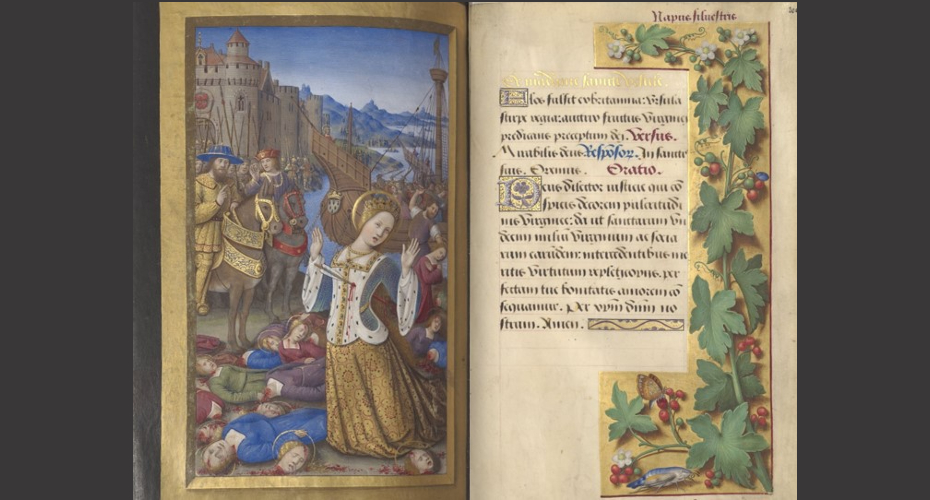 Napus siluestris
De
Flos fulsit ex britannia: Vrsula
stirpe regia: antiro fructus Virginei
predicans preceptum dei. Versus.
Mirabilis deus Respōsor. In sanctis
suis. Oremus. Oratio.
Deus dilector iustitie qui cō
spicis decorem pulcritudi
nis Virginee: da ut sanctarum Vn
decim milium Virginum ac socia
rum earūdem: intercedentibus me
ritis Virtutum per
fectam tue bonitatis amorem cō
sequamur. Per xpm dnm no
strum. Amen.